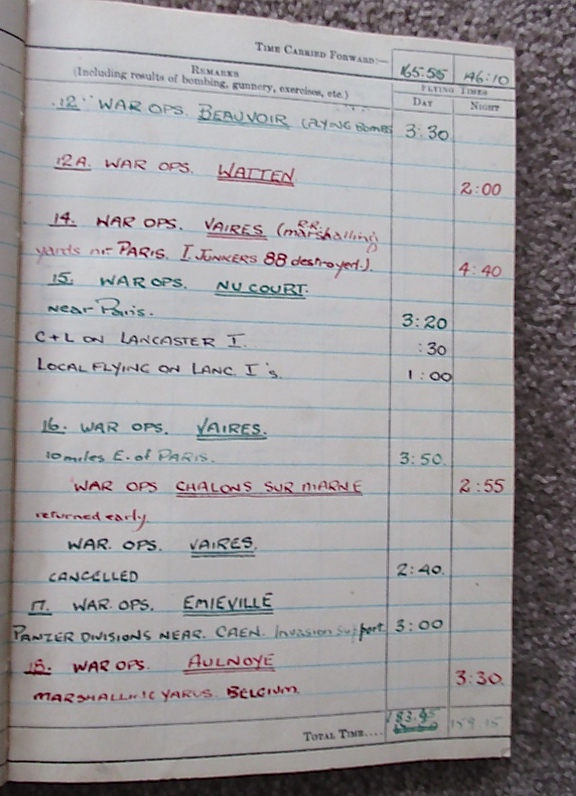 TIME CARRIED FORWARD:— 165:55 146:10
REMARKS
(Including results of bombing, gunnery, exercises, etc.)
FLYING TIMES
DAY NIGHT
12. WAR OPS. BEAUVOIR (FLYING BOMBS 3:30
12A. WAR OPS. WATTEN 2:00
14. WAR OPS. VAIRES (R.R. marshalling
yards nr. PARIS. I JUNKERS 88 destroyed.). 4:40
15. WAR OPS. NUCOURT.
near Paris. 3:20
C+L ON LANCASTER I. :30
LOCAL FLYING ON LANC. I's. 1:00
16. WAR OPS. VAIRES.
10 miles E. of PARIS. 3:50.
WAR OPS CHALONS SUR MARNE 2:55
returned early
WAR. OPS. VAIRES.
CANCELLED 2:40.
17. WAR. OPS. EMIEVILLE
PANZER DIVISIONS NEAR. CAEN. Invasion support 3:00
18. WAR OPS. AULNOYE
MARSHALLING YARDS BELGIUM 3:30.
TOTAL TIME.... 183.45 159.15